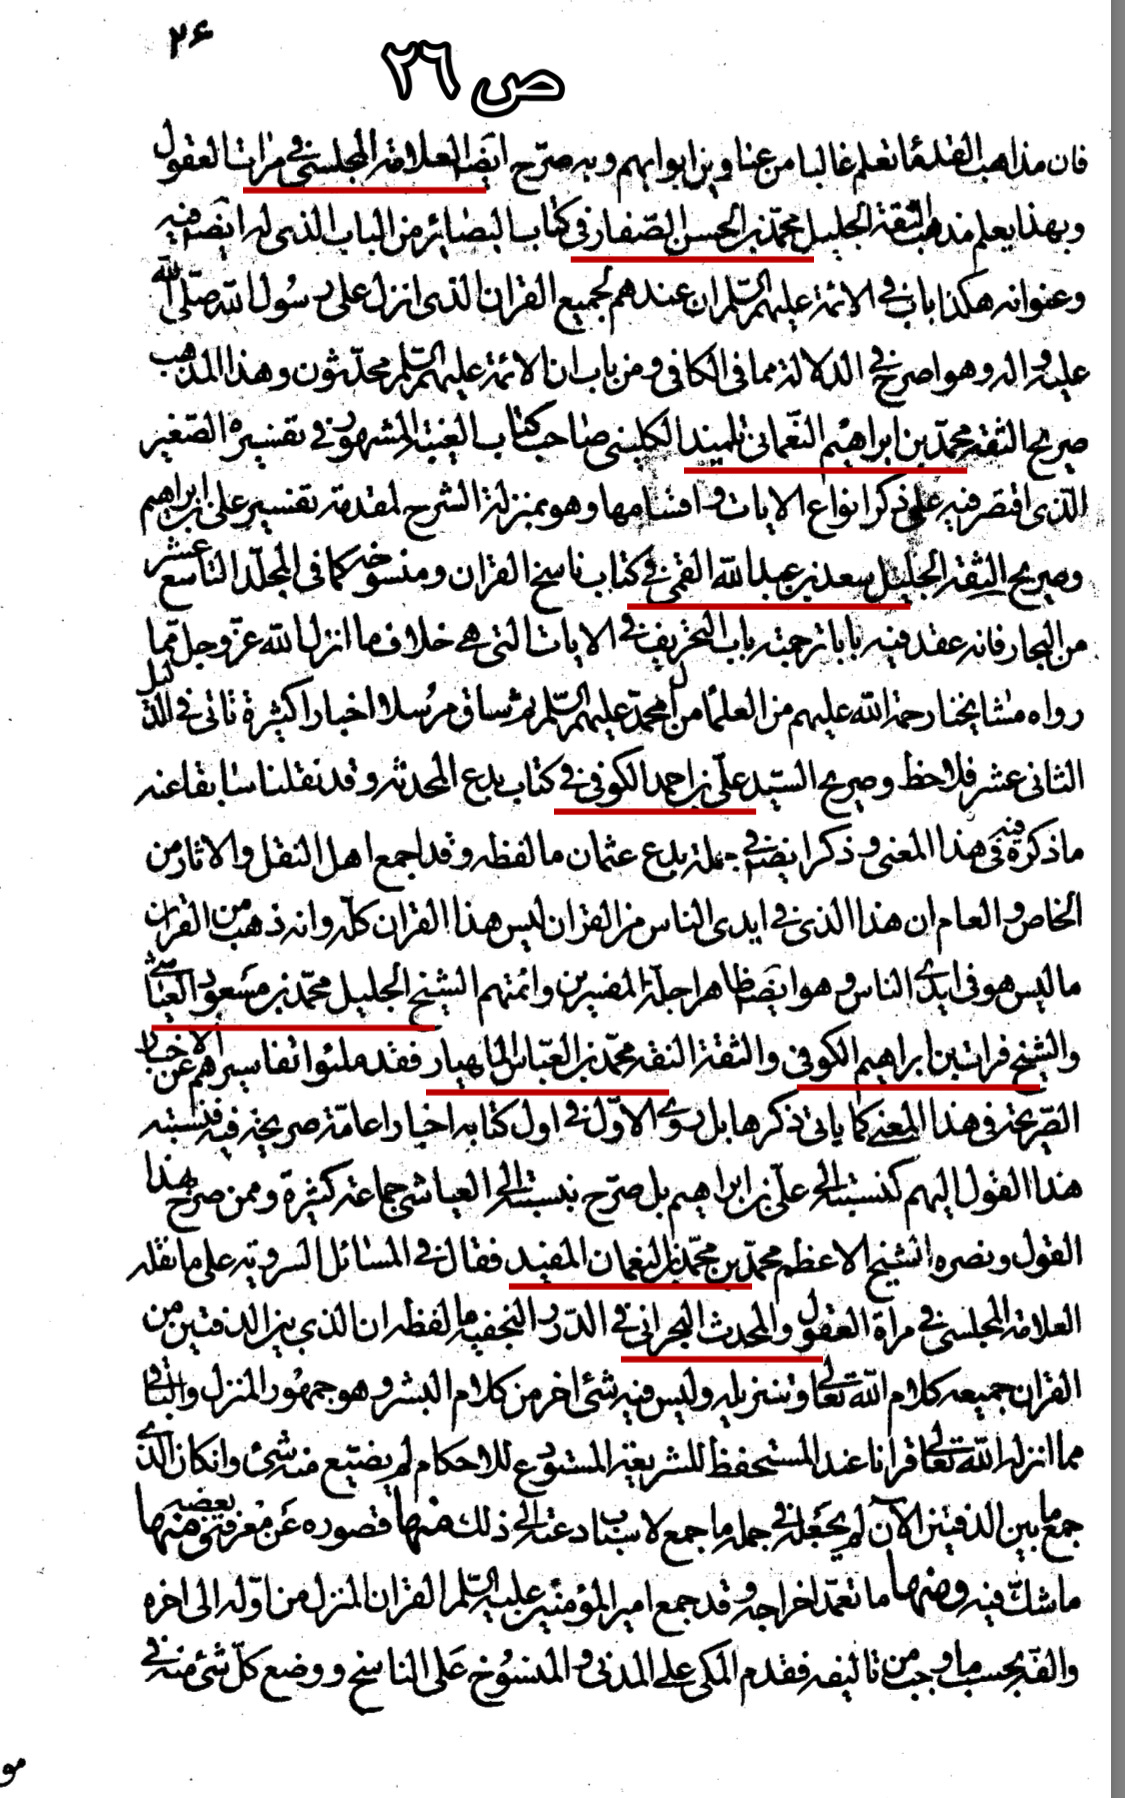 ۲۶
ص ٢٦
فان مذاهب القدماء تعلم غالبا من عناوين ابوابهم وبه صرّح ايضا العلامة المجلسي في مرات العقول
وبهذا يعلم مذهب الثقة الجليل محمّد بن الحسن الصّفار في كتاب البصائر من الباب الذى له ايضا فيه
وعنوانه هكذا باب في الائمة عليهم السّلم ان عندهم لجميع القران الذى انزل على رسول الله صلّى الله
عليه واله وهو اصرح في الدلالة مما في الكافي ومن باب ان الائمة عليهم السّلم محدّثون وهذا المذهب
صريح الثقة محمّد بن ابراهيم النّعماني تلميذ الكليني صاحب كتاب الغيبة المشهور في تفسيره الصّغير
الّذى اقتصر فيه على ذكر انواع الايات واقسامها وهو بمنزلة الشرح لمقدمة تفسير على بن ابراهيم
وصريح الثقة الجليل سعد بن عبد الله القمي في كتاب ناسخ القران ومنسوخه كما في المجلّد التاسع عشر
من البحار فانه عقد فيه بابا ترجمته باب التحريف في الايات التى هي خلاف ما انزل الله عزّ وجل ممّا
رواه مشايخنا رحمة الله عليهم من العلماء من ال محمّد عليهم السّلم ثم ساق مرسلا اخبارا كثيرة تاتى في الدّليل
الثانى عشر فلاحظ وصريح السّيد علىّ بن احمد الكوفي في كتاب بدع المحدثة وقد نقلنا سابقا عنه
ما ذكره فيه في هذا المعنى وذكر ايضا في جملة بدع عثمان ما لفظه وقد اجمع اهل النقل والاثار من
الخاص والعام ان هذا الذى في ايدى الناس من القران ليس هذا القران كلّه وانه ذهب من القران
ما ليس هو في ايدى الناس وهو ايضا ظاهر اجلة المفسرين وائمتهم الشيخ الجليل محمّد بن مسعود العياشى
والشيخ فرات بن ابراهيم الكوفى والثقة النقه محمّد بن العبّاس الماهيار فقد ملئوا تفاسيرهم عن الاخبار
الصّريحة في هذا المعنى كما ياتى ذكرها بل روى الاوّل في اول كتابه اخبارا عامّة صريحة فيه فنسبة
هذا القول اليهم كنسبته الى علىّ بن ابراهيم بل صرّح بنسبته الى العياشى جماعة كثيرة وممن صرح بهذا
القول ونصره الشيخ الاعظم محمّد بن محمّد بن النعمان المفيد فقال في المسائل السروية على ما نقله
العلامة المجلسى في مرآة العقول والمحدث البحرانى في الدّرر النجفيه ما لفظه ان الذى بين الدفتين من
القران جميعه كلام الله تعالى وتنزيله وليس فيه شئ اخر من كلام البشر وهو جمهور المنزل والباقى
مما انزله الله تعالى قرانا عند المستحفظ للشريعة المستودع للاحكام لم يضيّع منه شئ وان كان الذى
جمع ما بين الدفتين الآن لم يجعله في جملة ما جمع لاسباب دعته الى ذلك منها قصوره عن معرفة بعضه ومنها
ما شكّ فيه ومنها ما تعمّد اخراجه وقد جمع امير المؤمنين عليه السّلم القران المنزل من اوّله الى اخره
والفه بحسب ما وجب من تاليفه فقدم المكى على المدنى والمنسوخ على الناسخ ووضع كلّ شئ منه في
مو